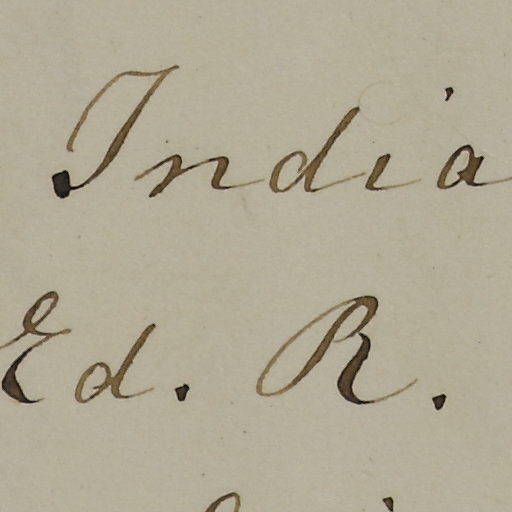 India
Ed. R.